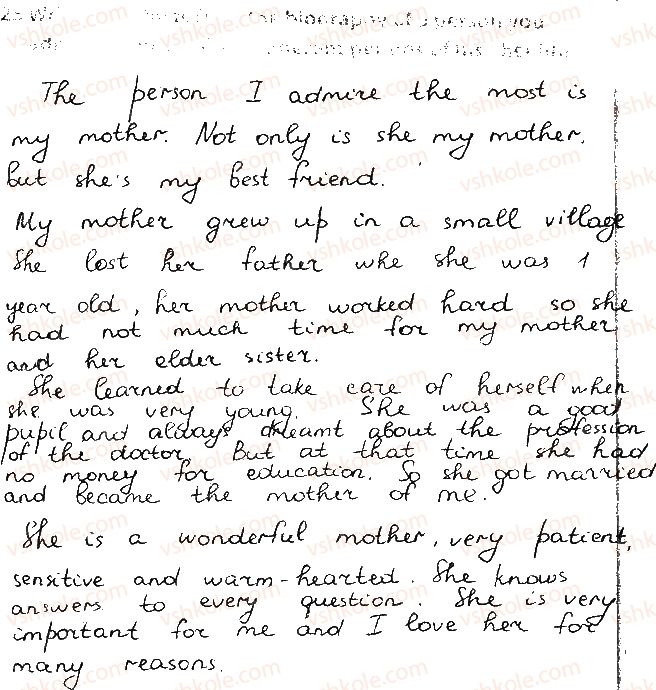 biography of a person you
The person I admire the most is
my mother. Not only is she my mother.
but she's my best friend.
My mother grew up in a small village
She lost her father whe she was 1
year old, her mother worked hard so she
had not much time for my mother
and her elder sister.
She learned to take care of herself when
she was very young. She was a good
pupil and always dreamt about the proffession
of the doctor. But at that time she had
no money for education. So she got married
and became the mother of me.
She is a wonderful mother, very patient,
sensitive and warm-hearted. She knows
answers to every question. She is very
important for me and I love her for
many reasons.